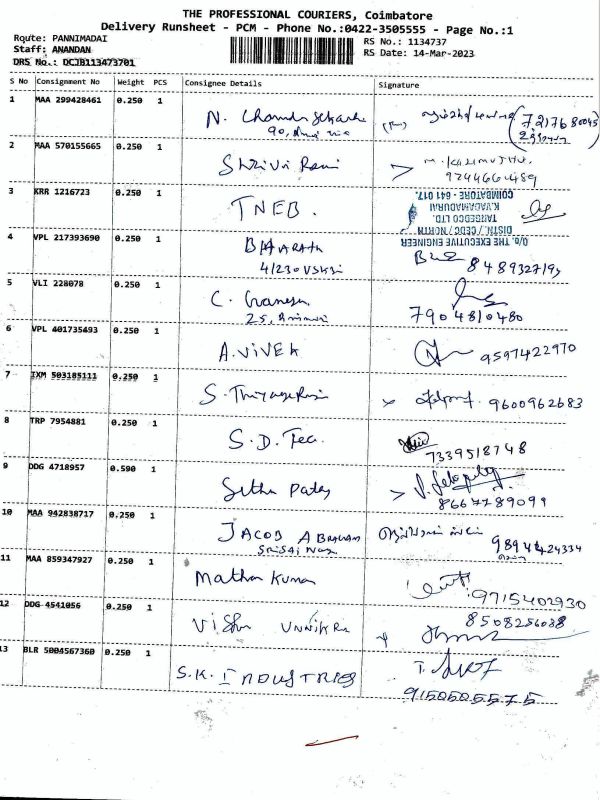 THE PROFESSIONAL COURIERS, Coimbatore
Delivery Runsheet - PCM - Phone No.:0422-3505555 - Page No.:1
Rout​e: PANNIMADAI
RS No.: 1134737
Staff: ANANDAN
RS Date: 14-Mar-2023
DRS No.: DCJB113473701
S No Consignment No Weight PCS Consignee Details Signature
1 MAA 299428461 0.250 1
N. Chandrasekar
90,
72176 80045
2 MAA 570155665 0.250 1
Shri Vi Rani
3 KRR 1216723 0.250 1
TNEB.
O/o. THE EXECUTIVE ENGINEER
DISTN. / CEDC / NORTH
TANGEDCO LTD.
K.VADAMADURAI
COIMBATORE - 641 017.
4 VPL 217393690 0.250 1
BHARATH
41230 VSKSI
5 VLI 228078 0.250 1
C. Ganesh
25,
7904810480
6 VPL 401735493 0.250 1
A.VIVEK
9597422970
7 IXM 503185111 0.250 1
S. Thiyagarajan
9600962683
8 TRP 7954881 0.250 1
S.D. Tec.
7339518748
9 DDG 4718957 0.590 1
Sethu Pathy
8667789099
10 MAA 942838717 0.250 1
JACOB ABRAHAM
SRISAI Nagar
9894424334
11 MAA 859347927 0.250 1
Mathan Kumar
9715402930
12 DDG 4541056 0.250 1
Vishnu UNNIKRI
8508256088
13 BLR 5004567360 0.250 1
S.K. INDUSTRIES
9150505575